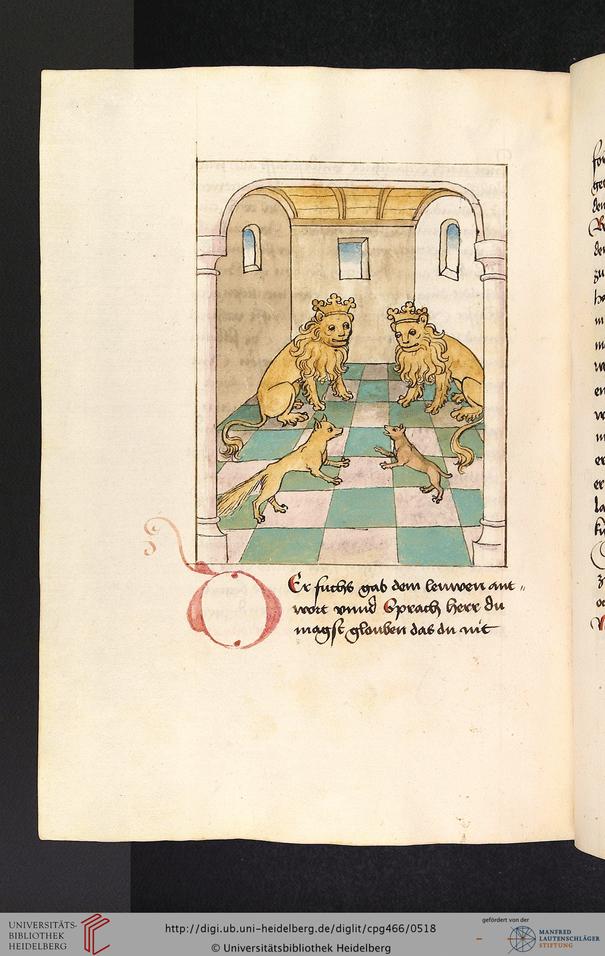 DEr fuchs gab dem leuwen ant„
wort vnnd Sprach herr du
magst glouben das du nit
UNIVERSITÄTS-
BIBLIOTHEK
HEIDELBERG
http://digi.ub.uni-heidelberg.de/diglit/cpg466/0518
© Universitätsbibliothek Heidelberg
gefördert von der
MANFRED
LAUTENSCHLÄGER
STIFTUNG